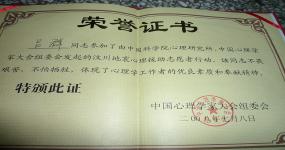 荣誉证书
同志参加了由中国科学院心理研究所、中国心理学
家大会组委会发起的汶川地震心理援助志愿者行动。该同志不畏
艰苦、不怕牺牲，体现了心理学工作者的优良素质和奉献精神。
特颁此证
中国心理学家大会组委会
二〇〇八年七月八日